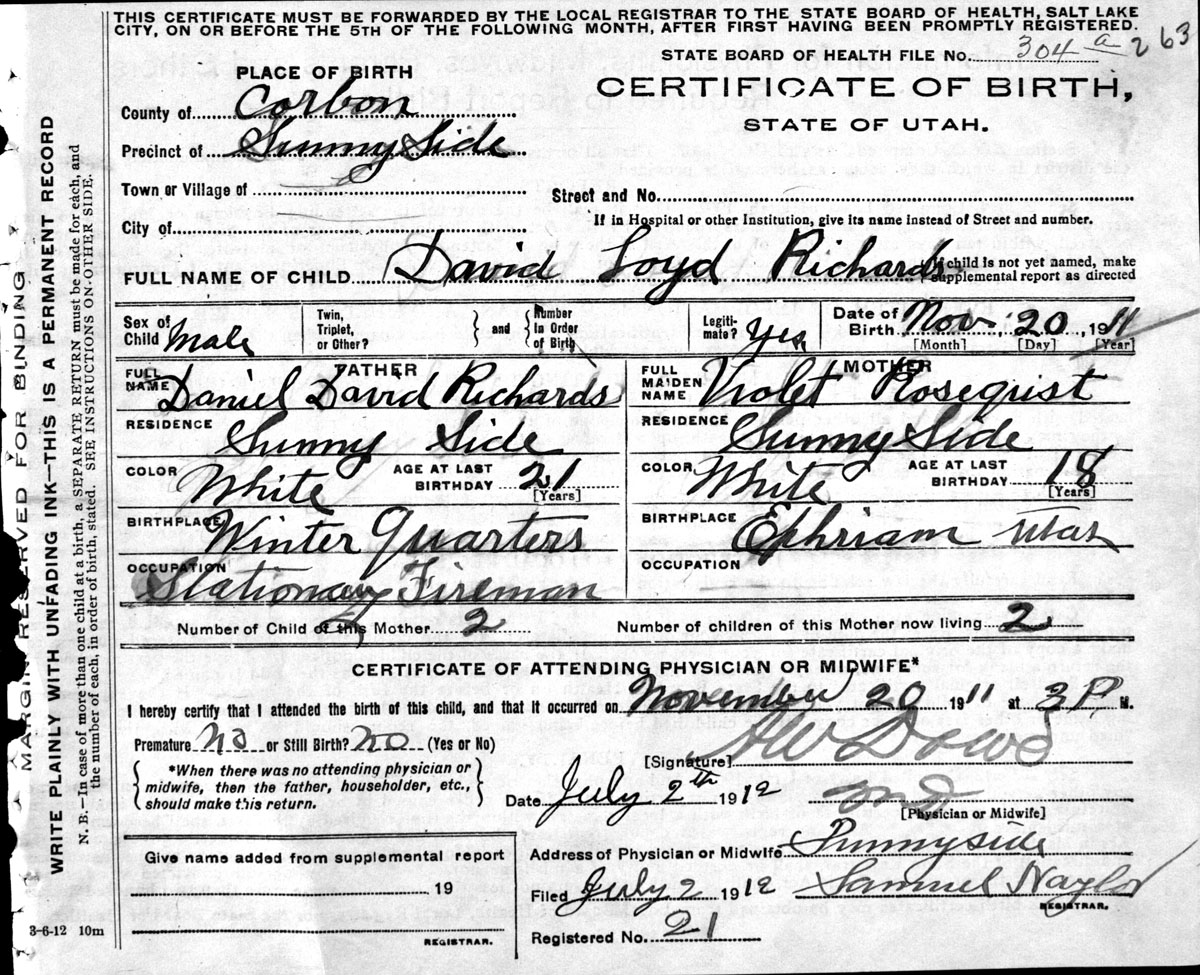 THIS CERTIFICATE MUST BE FORWARDED BY THE LOCAL REGISTRAR TO THE STATE BOARD OF HEALTH, SALT LAKE
CITY, ON OR BEFORE THE 5TH OF THE FOLLOWING MONTH, AFTER FIRST HAVING BEEN PROMPTLY REGISTERED.
STATE BOARD OF HEALTH FILE No. 304 a 263
PLACE OF BIRTH
CERTIFICATE OF BIRTH,
STATE OF UTAH.
County of Corbon
Precinct of Sunny Side
Town or Village of
Street and No.
If in Hospital or other Institution, give its name instead of Street and number.
City of
FULL NAME OF CHILD David Loyd Richards
If child is not yet named, make
supplemental report as directed
Sex of Child Male
Twin, Triplet, or Other?
and
Number In Order of Birth
Legiti-mate? Yes
Date of Birth Nov- 20, 1911
[Month] [Day] [Year]
FATHER
FULL NAME Daniel David Richards
MOTHER
FULL MAIDEN NAME Violet Rosequist
RESIDENCE Sunny Side
RESIDENCE Sunny Side
COLOR White
AGE AT LAST BIRTHDAY 21
[Years]
COLOR White
AGE AT LAST BIRTHDAY 18
[Years]
BIRTHPLACE Winter Quarters
BIRTHPLACE Ephriam Utah
OCCUPATION Stationary Fireman
OCCUPATION
Number of Child of this Mother 2
Number of children of this Mother now living 2
CERTIFICATE OF ATTENDING PHYSICIAN OR MIDWIFE*
I hereby certify that I attended the birth of this child, and that it occurred on November 20 1911 at 3 P M.
Premature No or Still Birth? No (Yes or No)
[Signature] AW Dowd
*When there was no attending physician or
midwife, then the father, householder, etc.,
should make this return.
Date July 2th 1912
MD
[Physician or Midwife]
Give name added from supplemental report
19
REGISTRAR.
Address of Physician or Midwife Sunnyside
Filed July 2 1912 Samuel Naylor
REGISTRAR.
Registered No. 21
3-6-12 10m
MARGIN RESERVED FOR BINDING
WRITE PLAINLY WITH UNFADING INK—THIS IS A PERMANENT RECORD
N. B.—In case of more than one child at a birth, a SEPARATE RETURN must be made for each, and
the number of each, in order of birth, stated. SEE INSTRUCTIONS ON OTHER SIDE.